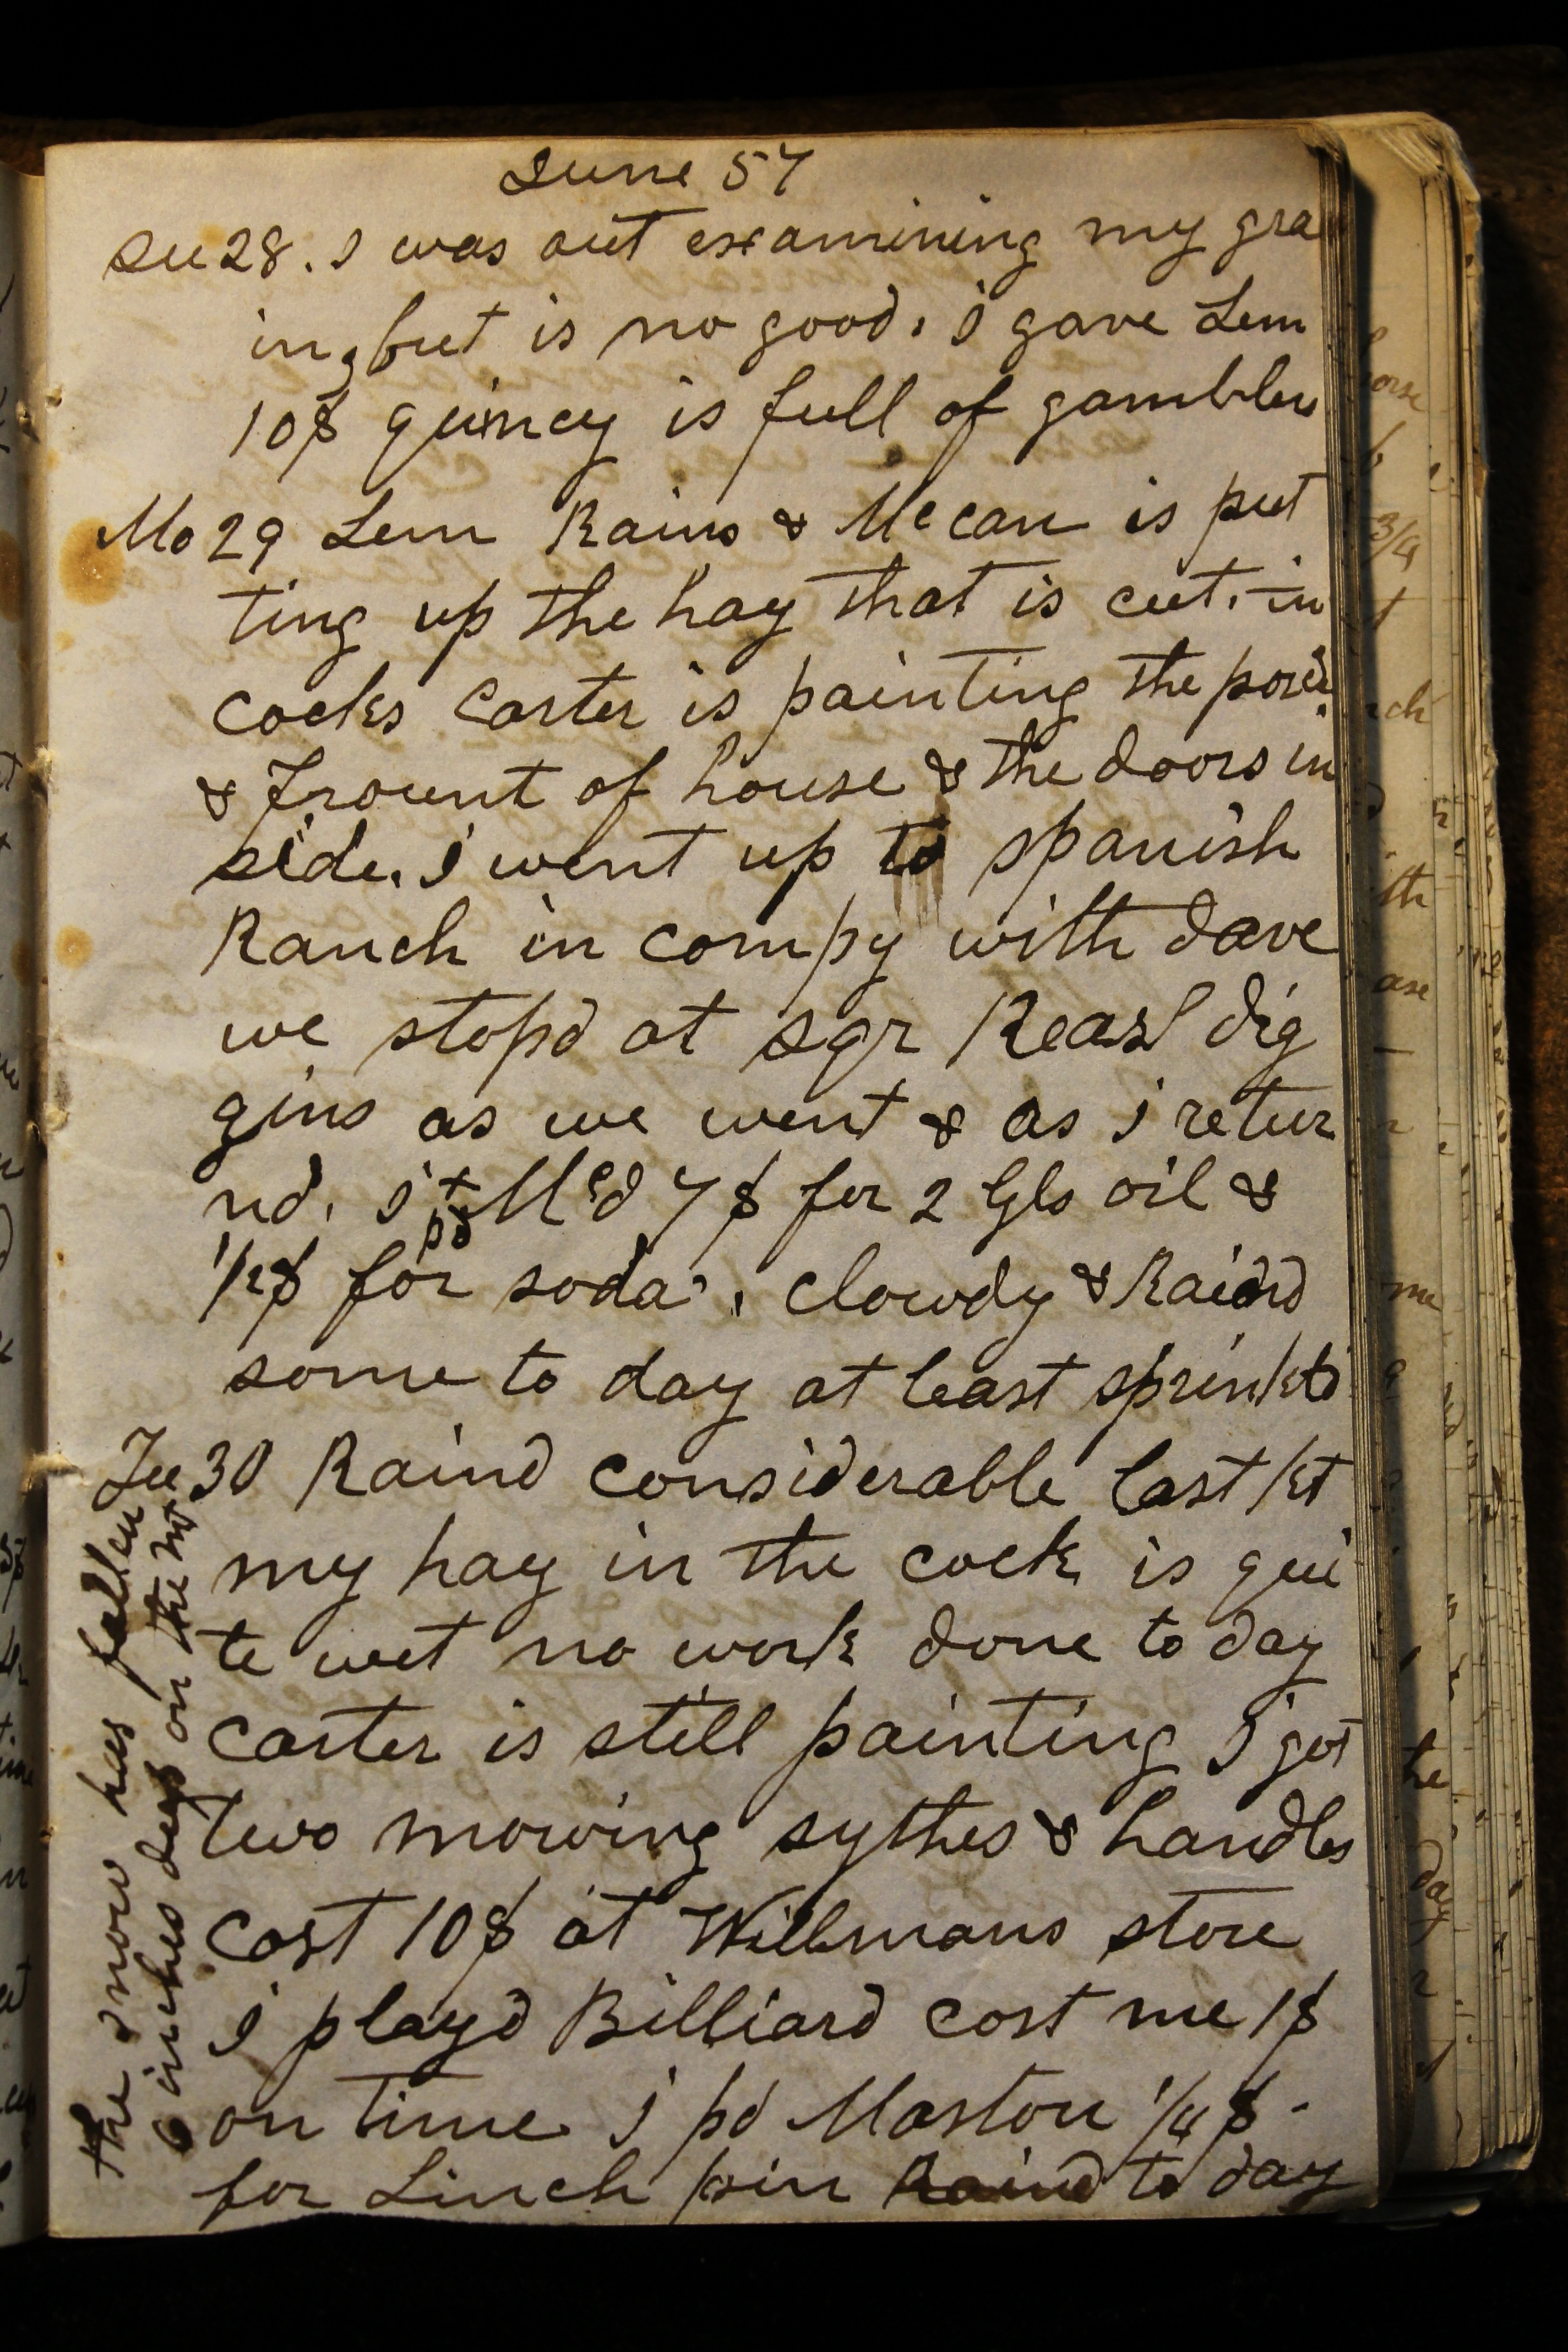 June 57
Su 28. I was out examining my gra
in, but is no good. I gave Lem
10$ quincy is full of gamblers
Mo 29 Lem Rains & Mc can is put
ting up the hay that is cut. in
cocks Carter is painting the
& frount of house & the doors in
side. I went up to spanish
Ranch in compy with Dave
we stopd at Sqr Reas dig
gins as we went & as I retur
nd. I + Mcd 7$ for 2 Gls oil &
pd
1/2$ for soda. Clowdy & Raind
some to day at least sprinkld
Tu 30 Raind considerable last
my hay in the cock is qui
te wet no work done to day
Carter is still painting I got
two mowing sythes & handles
cost 10$ at Willmans store
I playd Billiard cost me 1$
on time I pd Maston 1/4$ -
for Linch pin Raind to day
the snow has fallen
6 inches deep on the